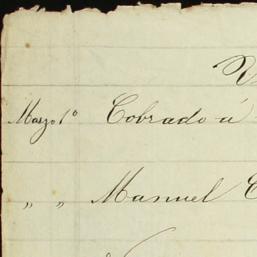 Marzo 1º Cobrado á
„ „ Manuel